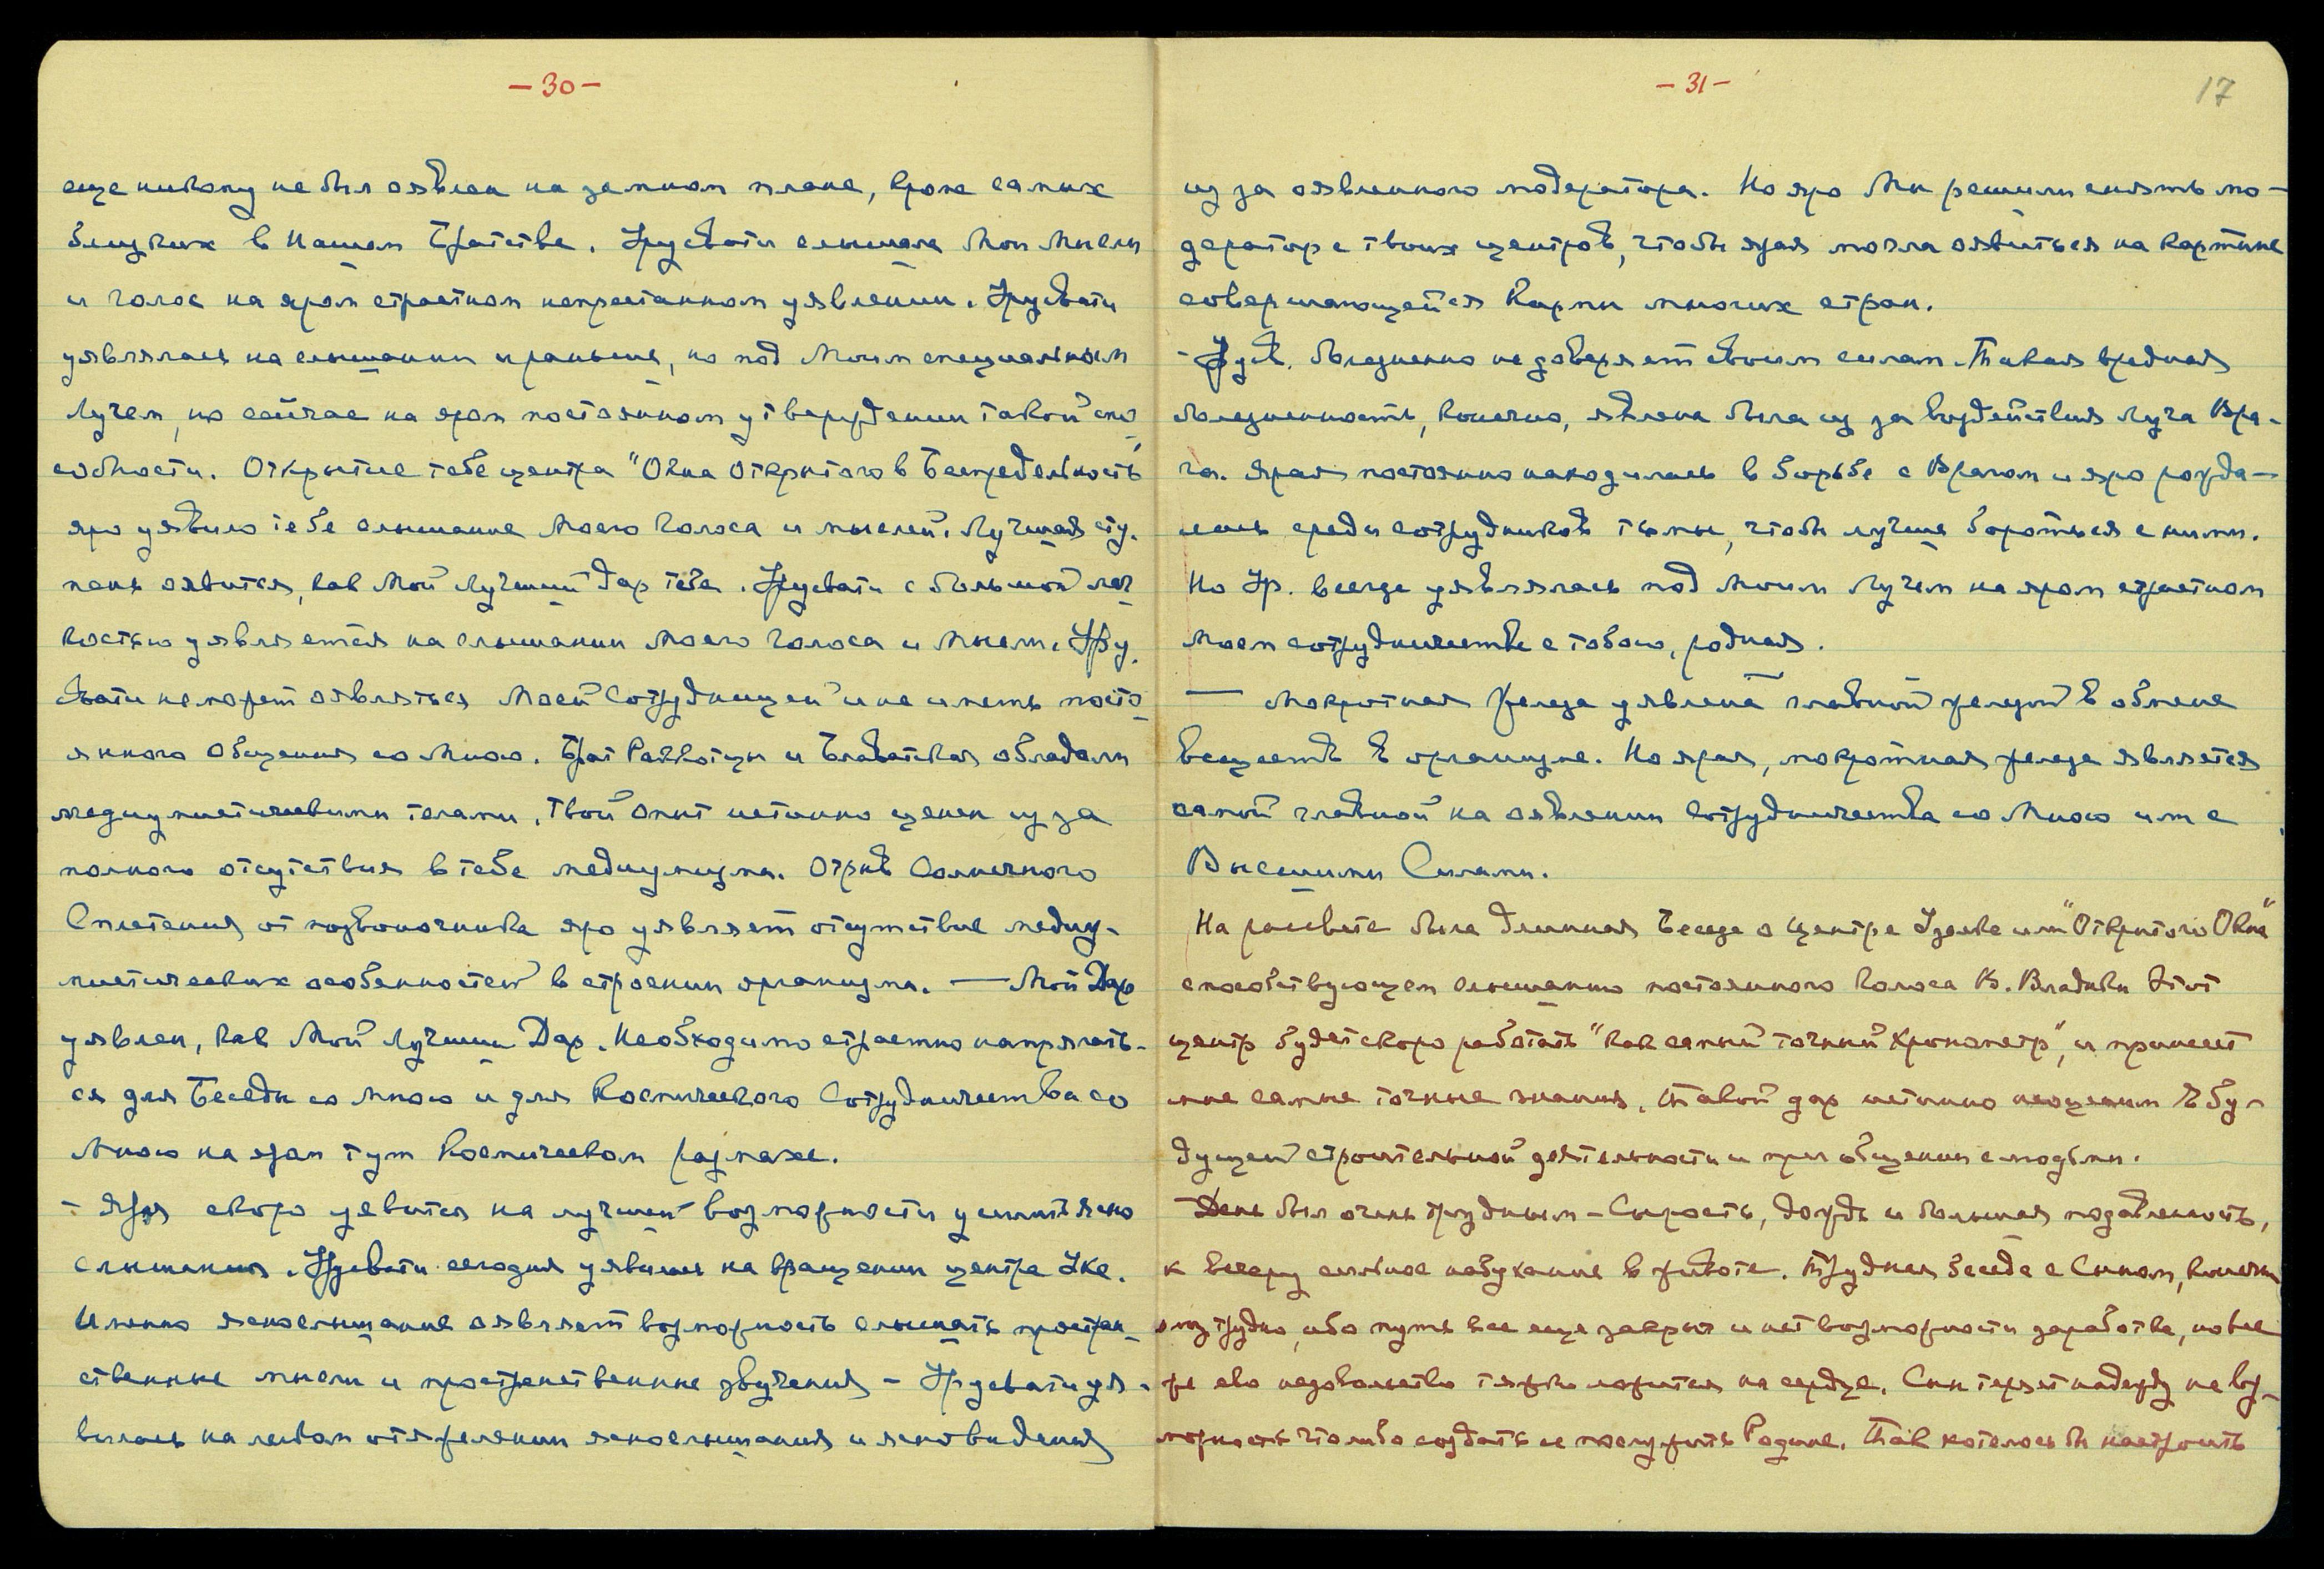 – 30 –
еще никому не был оявлен на земном плане, кроме самых
близких в Нашем Братстве. Урусвати слышала Мои Мысли
и голос на яром страстном непрестанном уявлении. Урусвати
уявлялась на слышании и раньше, но под Моим специальным
Лучем, но сейчас на яром постоянном утверждении такой спо-
собности. Открытие тебе центра "Окна Открытого в Беспредельность"
яро уявило тебе слышание Моего Голоса и мыслей. Лучшая сту-
пень оявится, как Мой Лучший Дар тебе. Урусвати с большой лег-
костью уявляется на слышании Моего Голоса и Мысли. Уру-
свати не может оявляться Моей Сотрудницей и не иметь посто-
янного Общения со Мною. Брат Ракоцзи и Блаватская обладали
медиумистическими телами, твой опыт истинно ценен из за
полного отсутствия в тебе медиумизма. Отрыв Солнечного
Сплетения от позвоночника яро уявляет отсутствие медиу-
мистических особенностей в строении организма. — Мой Дар
уявлен, как Мой Лучший Дар. Необходимо страстно напрягать-
ся для Беседы со Мною и для Космического Сотрудничества со
Мною на яром тут Космическом размахе.
– Яря скоро уявится на лучшей возможности усилить ясно
слышания. Урусвати сегодня уявилась на вращении центра Уха.
Именно яснослышание оявляет возможность слышать простран-
ственные мысли и пространственные звучания – Урусвати уя-
вилась на отяжелении яснослышания и ясновидения
– 31 –
17
из за оявленного модератора. Но яро Мы решили снять мо-
дератор с твоих центров, чтобы ярая могла оявиться на картине
совершающейся Кармы многих стран.
– Урусв. болезненно не доверяет своим силам. Такая вредная
болезненность, конечно, явлена была из за воздействия Луча Вра-
га. Ярая постоянно находилась в борьбе с Врагом и яро рожда-
лась среди сотрудников тьмы, чтобы лучше бороться с ними.
Но Ур. всегда уявлялась под Моим Лучем на яром страстном
Моем сотрудничестве с тобою, родная.
— Мокротная железа уявлена главной железой в обмене
веществ в организме. Но ярая, мокротная железа является
самой главной на оявлении Сотрудничества со Мною и с
Высшими Силами.
На рассвете была длинная Беседа о Центре Уданке или "Открытого Окна"
способствующем слышанию постоянного Голоса В. Владыки Этот
центр будет скоро работать "как самый точный Хронометр", и принесет
мне самые точные знания. Такой дар истинно неоценим в бу-
дущей строительной деятельности и при общении с людьми.
– День был очень трудным – Сырость, дождь и большая подавленность,
к вечеру сильное набухание в животе. Трудная беседа с Сыном, конечно
ему трудно, ибо путь все еще закрыт и нет возможности заработка, но все
же его недовольство тяжко ложится на сердце. Сын теряет надежду на воз-
можность что либо создать и послужить Родине. Так хотелось бы настроить